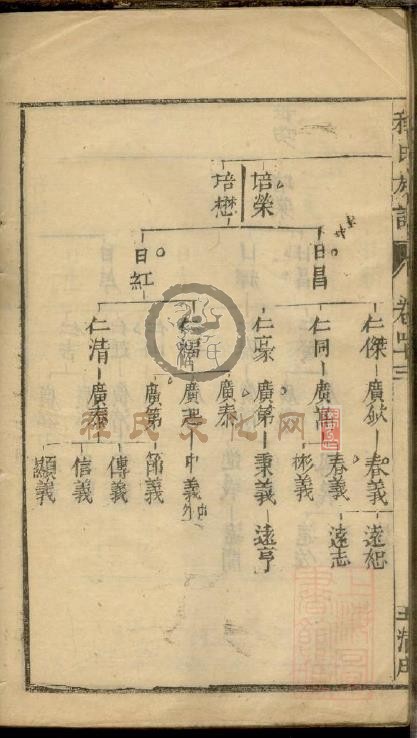 程氏族譜 卷四十三
培榮
培懋
日昌
日紅
仁傑 廣欽 春義 遠恕
仁同 廣萬 春義 遠志
彬義
仁豪 廣第 秉義 遠亨
廣泰
仁福 廣思 中義
廣第 節義
仁清 廣泰 傳義
信義
顯義
程氏文化网